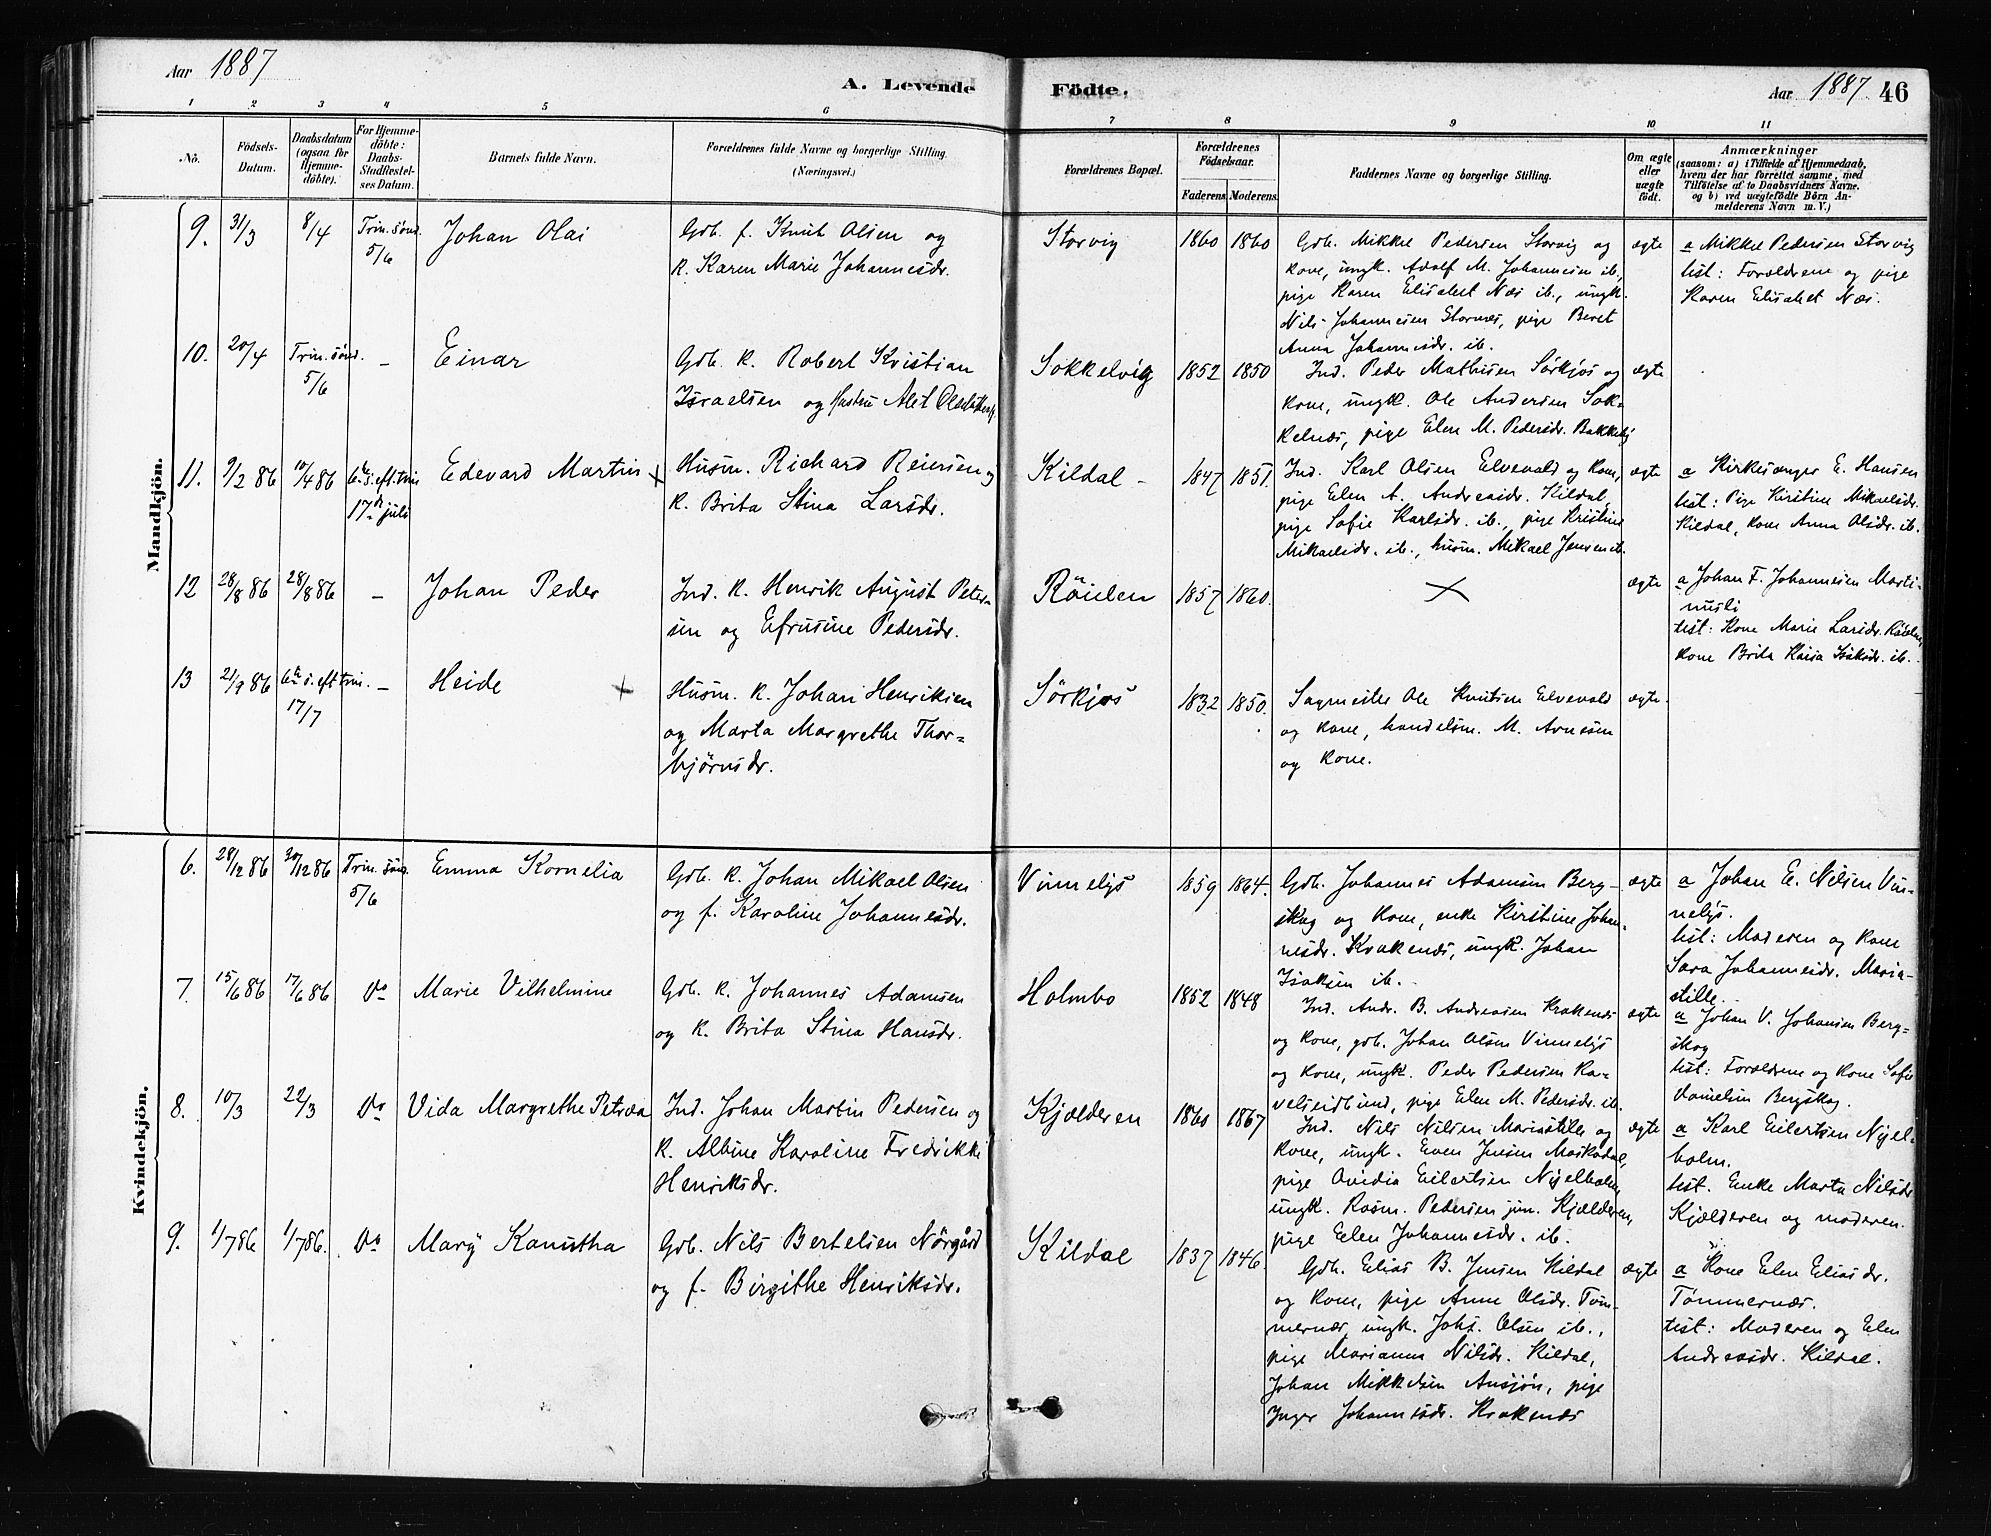 Aar 1887
A. Levende
Födte.
Aar 1887. 46
1 2 3 4 5 6 7 8 9 10 11
No.
Födsels-
Datum.
Daabsdatum
(ogsaa for
Hjemme-
döbte).
For Hjemme-
döbte:
Daabs-
Stadfæstel-
ses Datum.
Barnets fulde Navn.
Forældrenes fulde Navne og borgerlige Stilling.
(Næringsvei.)
Forældrenes Bopæl.
Forældrenes
Födselsaar.
Faderens. Moderens.
Faddernes Navne og borgerlige Stilling.
Om ægte
eller
uægte
födt.
Anmærkninger
(saasom: a) i Tilfælde af Hjemmedaab,
hvem der har forrettet samme, med
Tilföielse af to Daabsvidners Navne,
og b) ved uægtefödte Börn An-
melderens Navn m. V.)
Mandkjön.
9. 31/3 8/4 Trin. sönd. 5/6
Johan Olai
Gdb. f. Knut Olsen og
k. Karen Marie Johannesdr.
Storvig 1860 1860
Gdb. Mikkel Pedersen Storvig og
kone, ungk. Adolf M. Johannesen ib.,
pige Karen Elisabet Næs ib., ungk.
Nils Johannesen Stornes, pige Beret
Anna Johannesdr. ib.
ægte
a Mikkel Pedersen Storvig
test: Forældrene og pige
Karen Elisabet Næs.
10. 20/4 Trin. sönd. 5/6 -
Einar
Gdb. k. Robert Kristian
Israelsen og Hustru Alet
Sokkelvig 1852 1850
Ind. Peder Mathisen Sørkjos og
kone, ungk. Ole Andersen Sok-
kelnæs, pige Elen M. Pedersdr. Bakkeby
ægte
11. 9/2 86 10/4 86 6te s. eft. trin 17de juli
Edevard Martin x
Husm. Richard Reiersen og
k. Brita Stina Larsdr.
Kildal - 1847 1851.
Ind. Karl Olsen Elvevold og kone,
pige Elen A. Andreasdr. Kildal,
pige Sofie Karlsdr. ib., pige Kristine
Mikaelsdr. ib., husm. Mikael Jensen ib.
ægte
a Kirkesanger E. Hansen
test: Pige Kirstine Mikaelsdr.
Kildal, kone Anna Olsdr. ib.
12 28/8 86 28/8 86 -
Johan Peder
Ind. k. Henrik August Peter-
sen og Efrusine Pedersdr.
Röielen 1857 1860.
x
ægte
a Johan F. Johannesen Marti-
nusli
test: Kone Marie Larsdr. Röielen,
kone Brita Kaisa Isaksdr. ib.
13 21/9 86 6te s. eft trin. 17/7 -
Heide x
Husm. k. Johan Henriksen
og Marta Margrethe Thor-
bjørnsdr.
Sørkjos 1832 1850.
Sagmester Ole Knutsen Elvevold
og kone, handelsm. M. Arnesen
og kone.
ægte.
Kvindekjön.
6. 28/12 86 30/12 86 Trin. sönd. 5/6
Emma Kornelia
Gdb. k. Johan Mikael Olsen
og f. Karoline Johannesdr.
Vinnelys 1859 1864.
Gdb. Johannes Adamsen Berg-
skog og kone, enke Kirstine Johan-
nesdr. Krakenæs, ungk. Johan
Isaksen ib.
ægte
a Johan E. Nilsen Vin-
nelys.
test: Moderen og kone
Sara Johannesdr. Maria-
stille.
7. 15/6 86 17/6 86 Do
Marie Vilhelmine
Gdb. k. Johannes Adamsen
og k. Brita Stina Hansdr.
Holmbo 1852 1848
Ind. Andr. B. Andreasen Krakenæs
og kone, gdb. Johan Olsen Vinnelys
og kone, ungk. Peder Pedersen Ra-
velseidbund, pige Elen M. Pedersdr. ib.
ægte
a Johan V. Johansen Berg-
skog
test: Forældrene og kone Sofie
Danielsen Bergskog.
8. 10/3 22/3 Do
Vida Margrethe Petrea
Ind. Johan Martin Pedersen og
k. Albine Karoline Fredrikke
Henriksdr.
Kjælderen 1860 1867
Ind. Nils Nilsen Mariastille og
kone, ungk. Even Jensen Maskodal,
pige Ovidia Eilertsen Nyelholm,
ungk. Rasm. Pedersen jun. Kjælderen,
pige Elen Johannesdr. ib.
ægte
a Karl Eilertsen Nyel-
holm.
test. Enke Marta Nilsdr.
Kjælderen og moderen.
9. 1/7 86 1/7 86. Do
Mary Kanutha
Gdb. Nils Bertelsen Nørgård
og f. Birgithe Henriksdr.
Kildal 1837 1846
Gdb. Elias B. Jensen Kildal
og kone, pige Anne Olsdr. Tøm-
mernæs, ungk. Johs. Olsen ib.,
pige Marianna Nilsdr. Kildal,
Johan Mikkelsen Ansjön, pige
Inger Johannesdr. Krakenæs
ægte
a Kone Elen Eliasdr.
Tømmernæs.
test: Moderen og Elen
Andreasdr. Kildal.